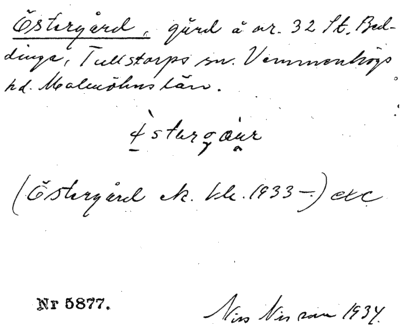 Östergård, gård å nr. 32 St. Bed-
dinge, Tullstorps sn. Vemmenhögs
hd. Malmöhus län.
(Östergård ek. kle. 1933—) etc
Nr 5877.
Nils Nilsson 1934.